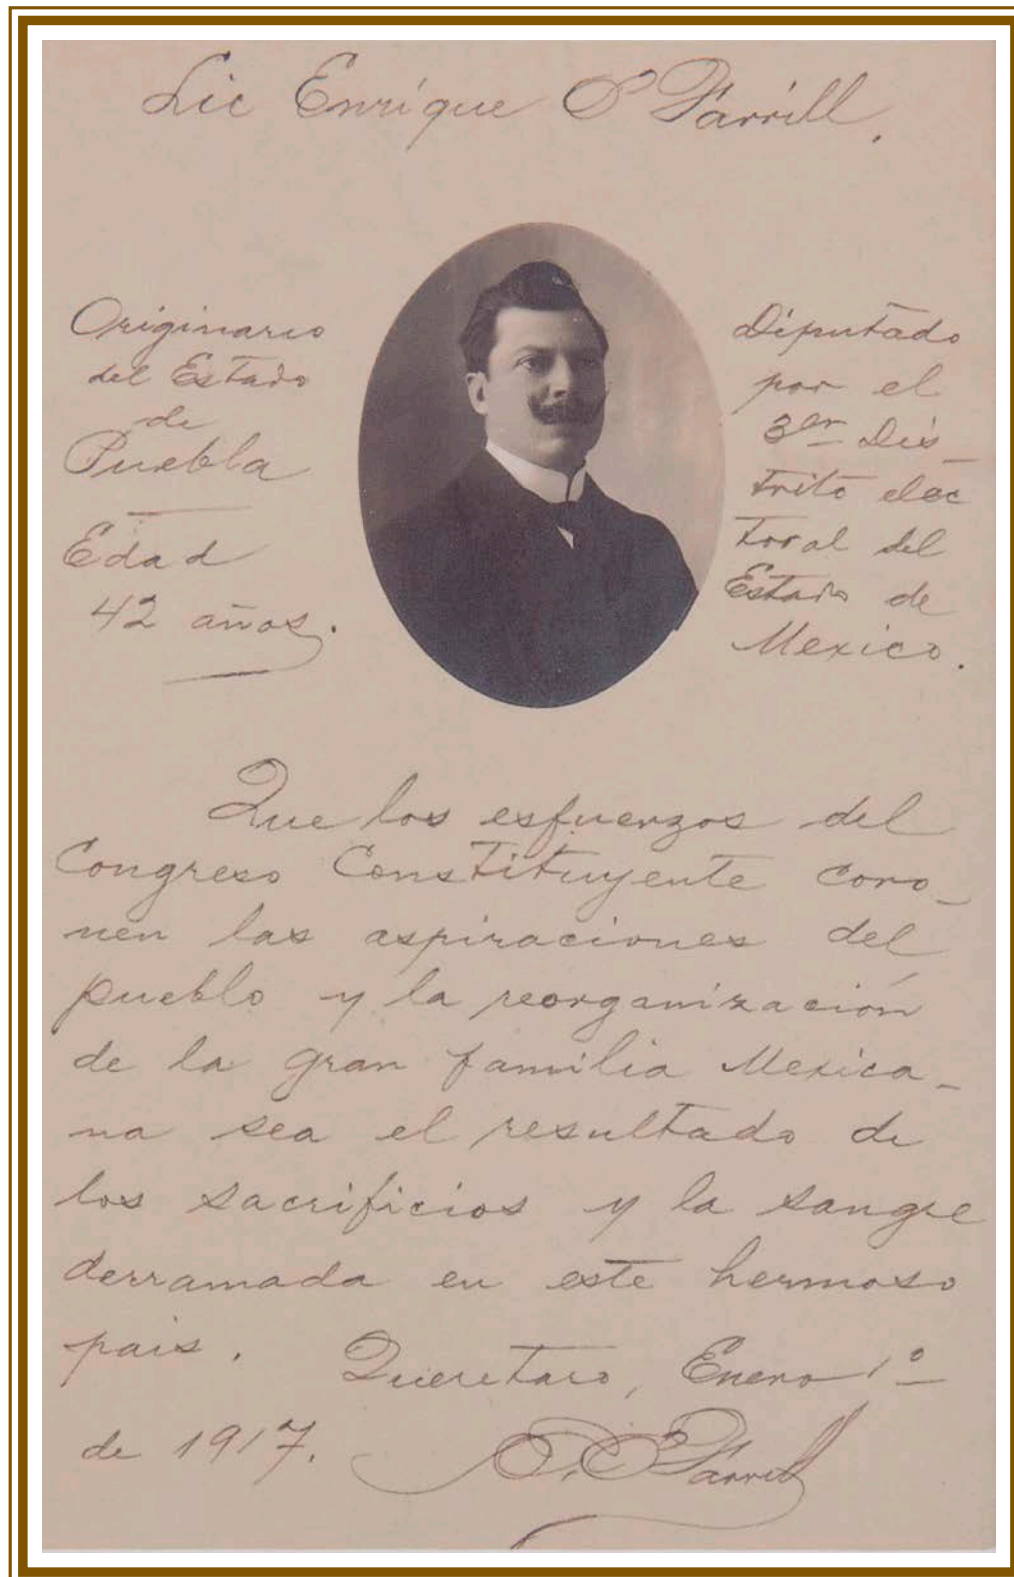 Lic Enrique O'Farrill.
Originario
del Estado
de
Puebla
Edad
42 años.
Diputado
por el
3er Dis_
trito elec
toral del
Estado de
Mexico.
Que los esfuerzos del
Congreso Constituyente coro_
nen las aspiraciones del
pueblo y la reorganización
de la gran familia Mexica_
na sea el resultado de
los sacrificios y la sangre
derramada en este hermoso
pais. Queretaro, Enero 1º
de 1917. E. O'Farrill